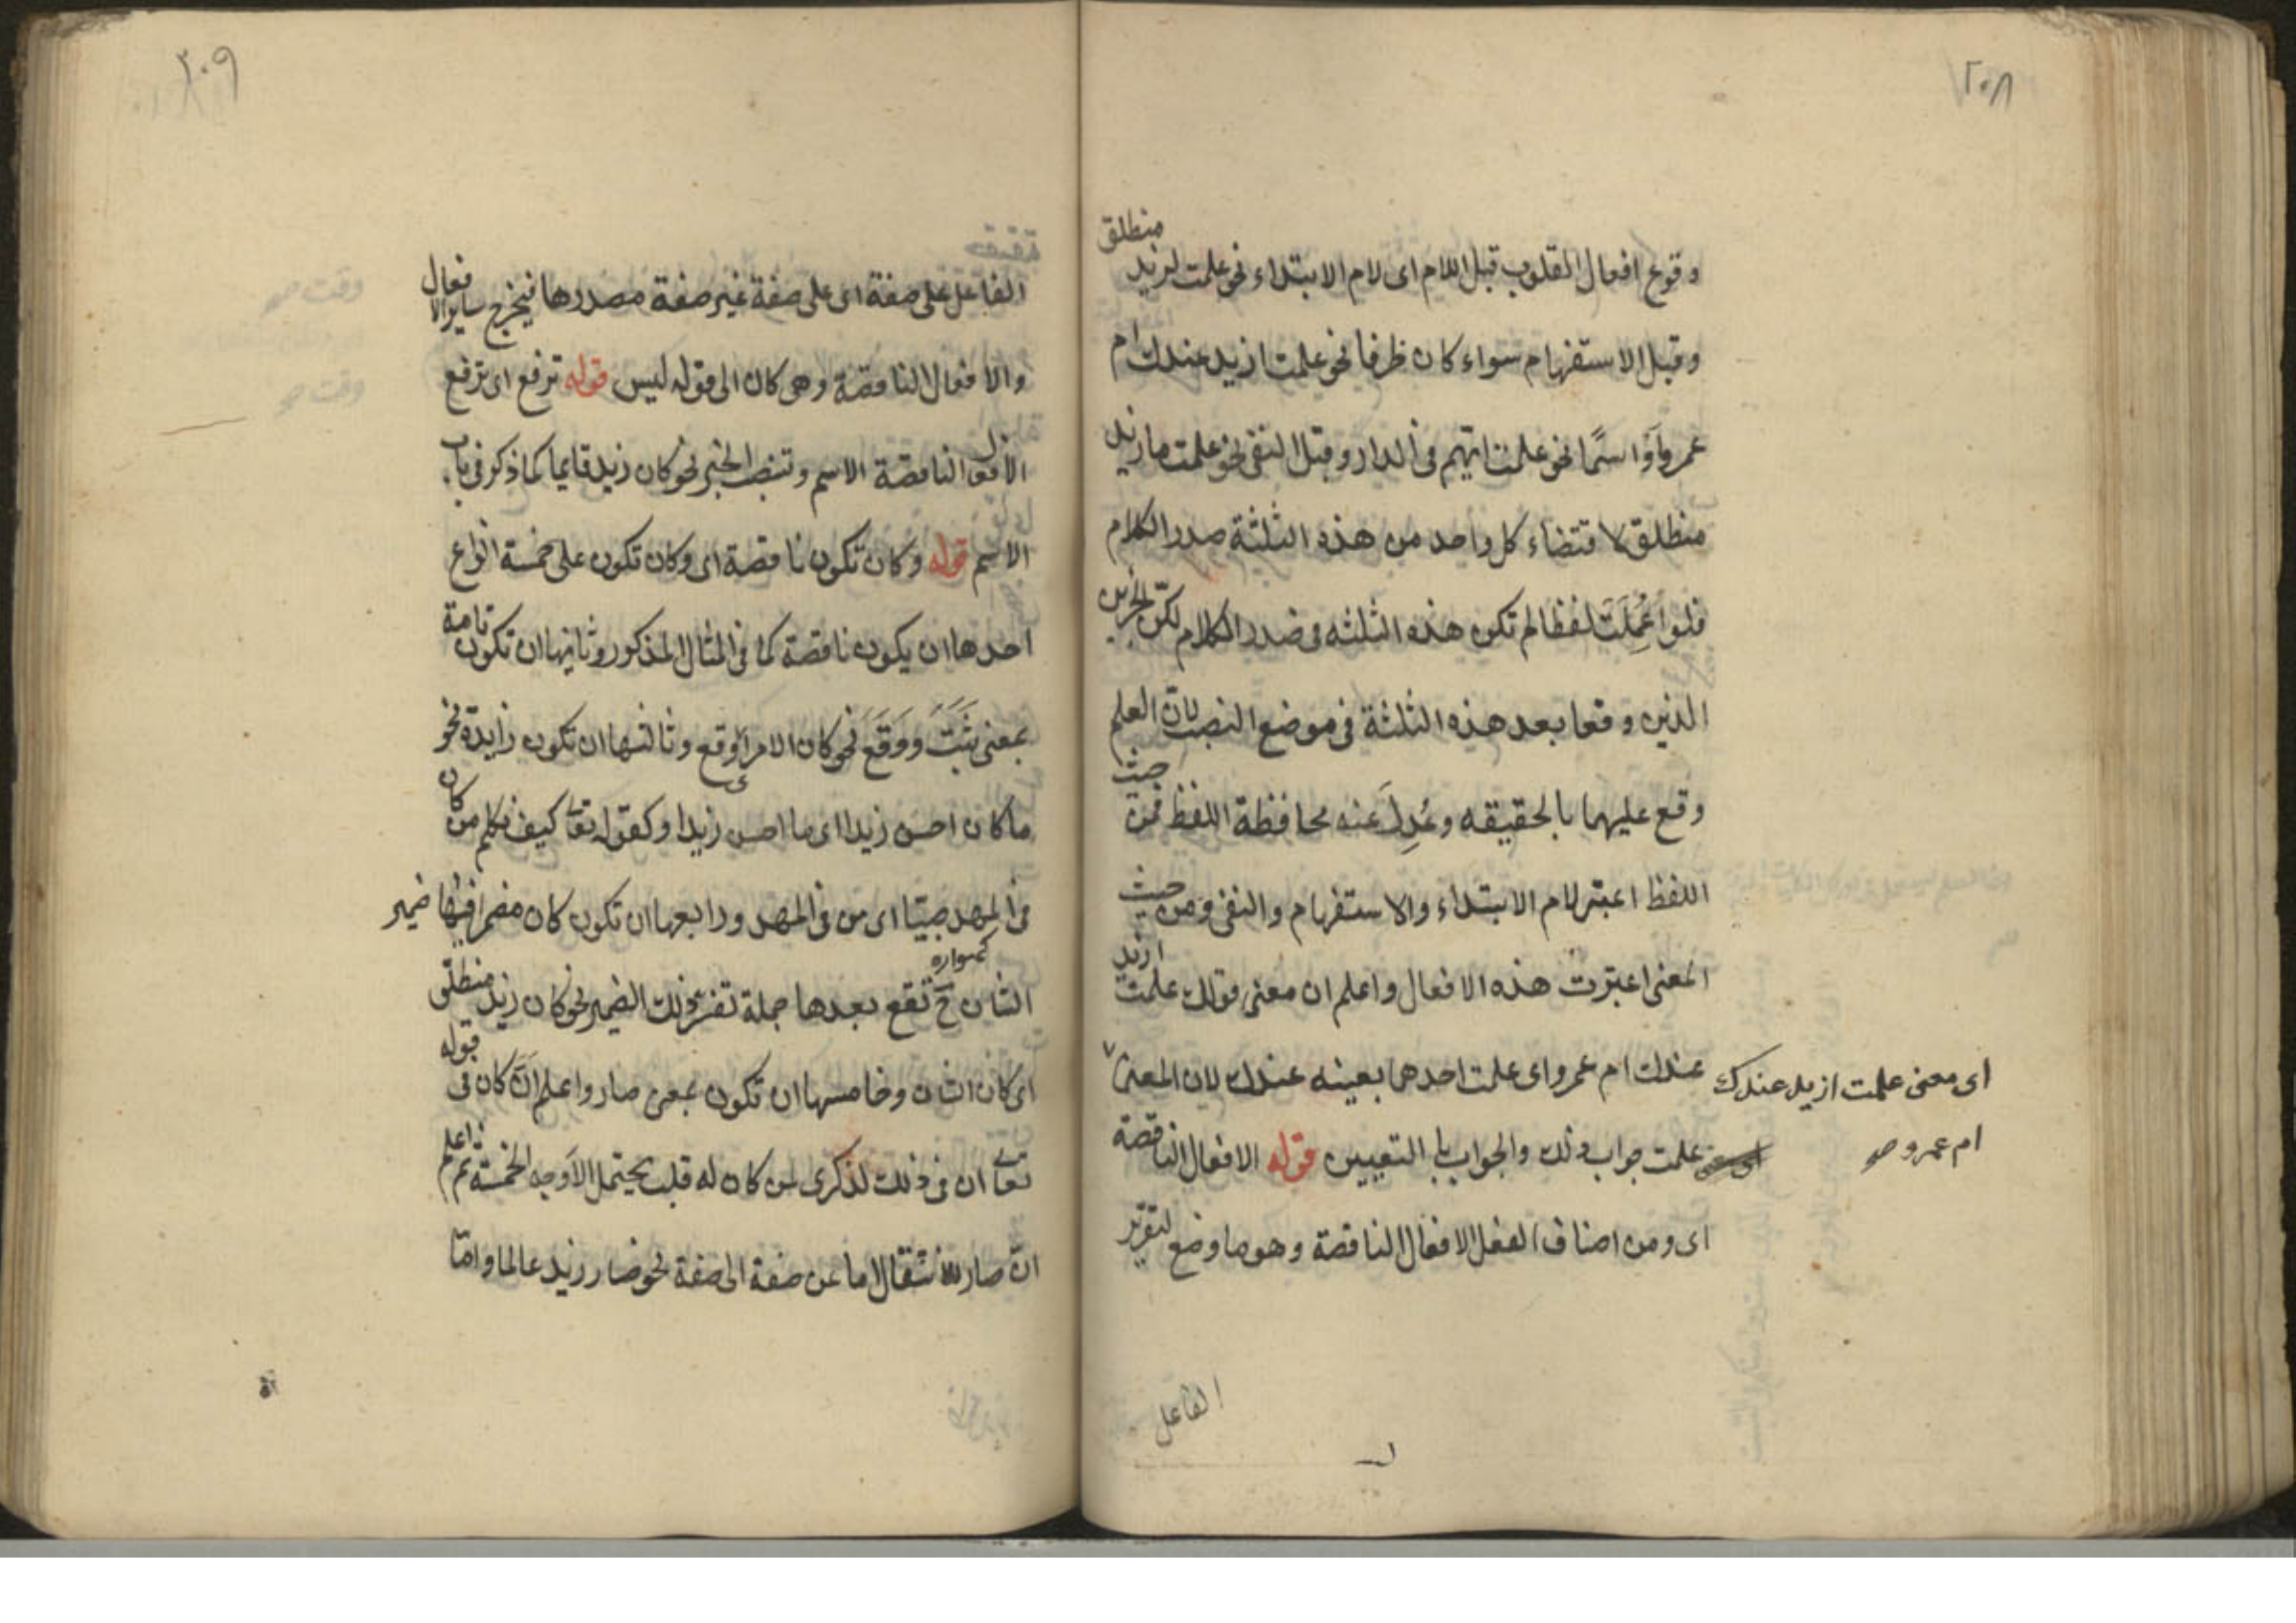 ٢٠٨
وقوع افعال القلوب قبل اللام اى لام الابتداء نحو علمت لزيد منطلق
وقبل الاستفهام سواء كان ظرفا نحو علمت ازيد عندك ام
عمرو اَوْ اسمًا نحو علمت ايّهم فى الدار وقبل النفى نحو علمت ما زيد
منطلق لاقتضاء كل واحد من هذه الثلثة صدر الكلام
فلو اُعْمِلَتْ لفظا لم تكن هذه الثلثه فى صدر الكلام لكنّ الجزئين
الذين وقعا بعد هذه الثلثة فى موضع النصب لانّ العلم
وقع عليهما بالحقيقه وعُدِلَ عنه محافظة اللفظ فمن حيث
اللفظ اعتبر لام الابتداء والاستفهام والنفى ومن حيث
المعنى اعتبرت هذه الافعال واعلم ان معنى قولك علمت ازيد
عندك ام عمرو اى علمت احدهما بعينه عندك لان المعنى
اى معنى علمت ازيد عندك
ام عمرو صح
علمت جواب ذلك والجواب باب التعيين قوله الافعال الناقصة
اى ومن اصناف الفعل الافعال الناقصة وهو ما وضع لتقرير
الفاعل
٢٠٩
الفاعل على صفة اى على صفة غير صفة مصدرها فيخرج ساير الافعال
والافعال الناقصة وهى كان الى قوله ليس قوله ترفع اى ترفع
الافعال الناقصة الاسم وتنصب الخبر نحو كان زيد قايما كما ذكر فى باب
الاسم قوله وكان تكون ناقصة اى وكان تكون على خمسة انواع
احدها ان يكون ناقصة كما فى المثال المذكور وثانيها ان تكون تامة
بمعنى ثَبَتَ ووَقَعَ نحو كان الامر اى وقع وثالثها ان تكون زايدة نحو
ما كان احسن زيدا اى ما احسن زيدا وكقوله تعا كيف نكلم من كان
فى المهد صبيّا اى من فى المهد ورابعها ان تكون كان مضمرا فيها ضمير
كهواره
الشان ح تقع بعدها جملة تفسر ذلك الضمير نحو كان زيد منطلق
اى كان الشان وخامسها ان تكون بمعنى صار واعلم انّ كان فى قوله
تعا ان فى ذلك لذكرى لمن كان له قلب يحتمل الاوجه الخمسة ثم اعلم
انّ صار للانتقال اما عن صفة الى صفة نحو صار زيد عالما وامّا